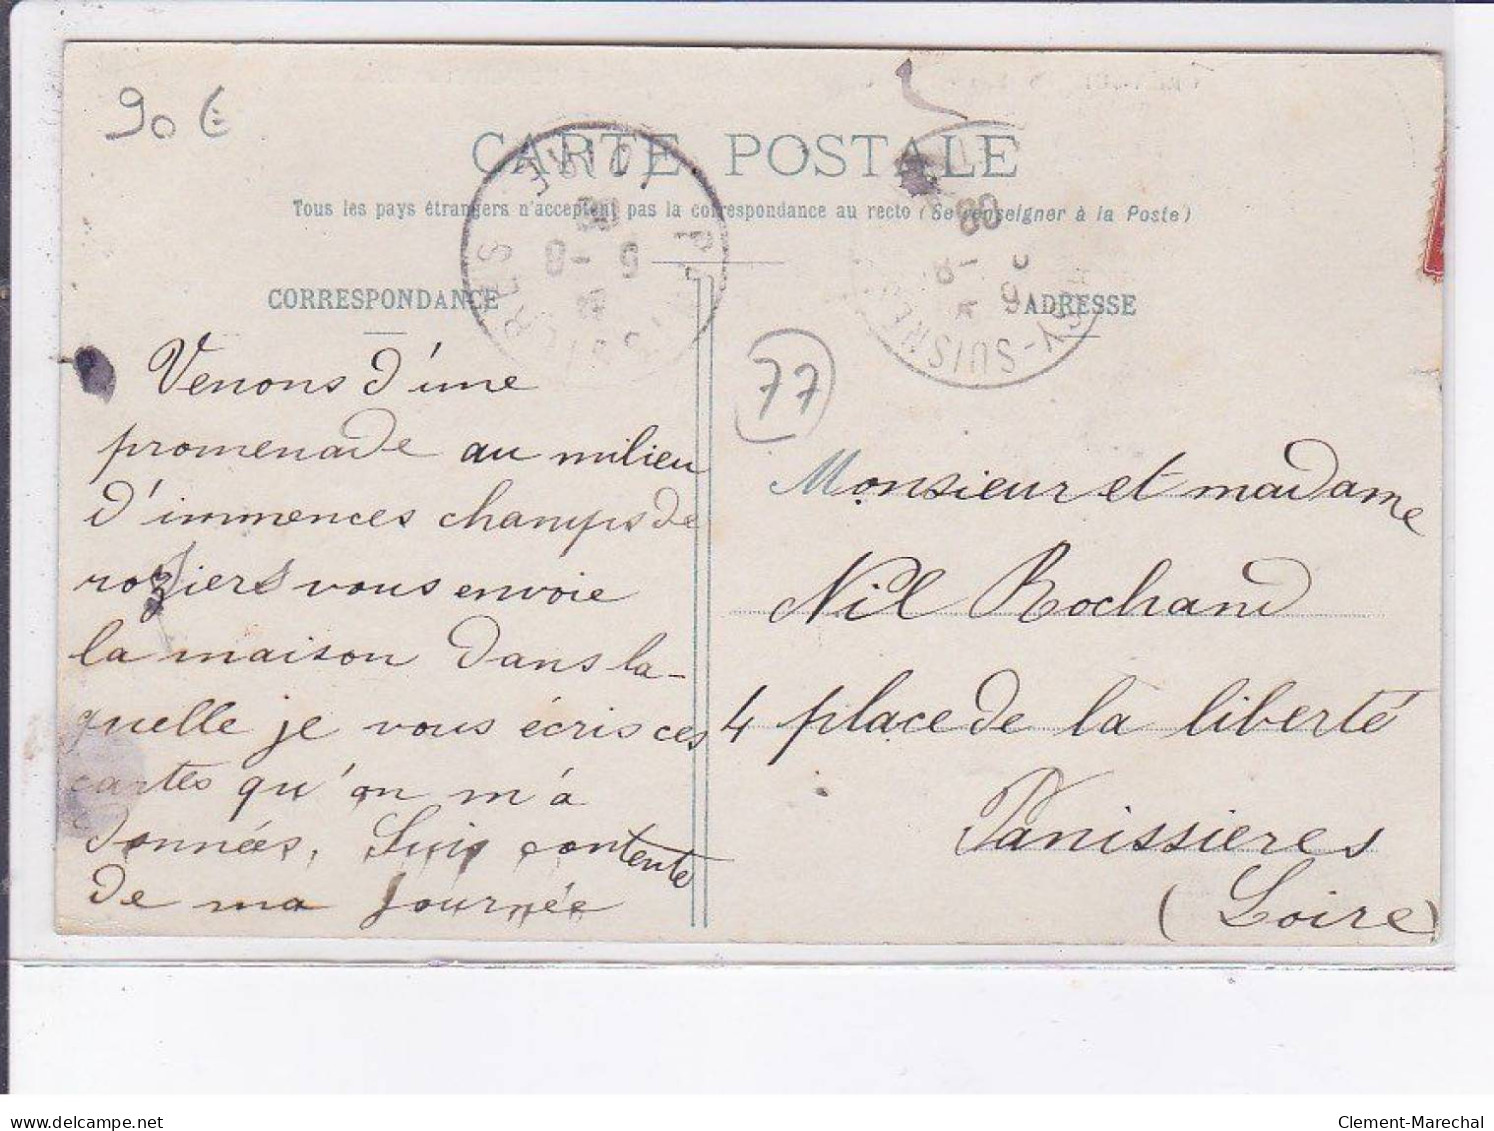 90 €
CARTE POSTALE
Tous les pays étrangers n'acceptent pas la correspondance au recto (Se renseigner à la Poste)
CORRESPONDANCE
ADRESSE
Venons d'une
promenade au milieu
d'immences champs de
roziers vous envoie
la maison dans la-
quelle je vous écris ces
cartes qu'on m'a
données, Suis contente
de ma journée
77
Monsieur et madame
Nil Rochand
4 place de la liberté
Panissieres
(Loire)
LOIRE
08
8-9
Y-SUISNE
08
delcampe.net
Clement-Marechal